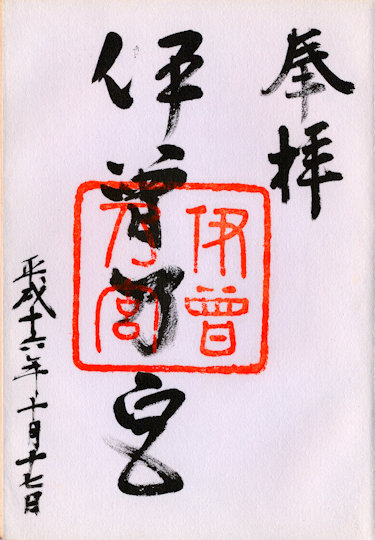 奉拝
伊曽乃宮
伊曽乃宮
平成十六年十月十七日